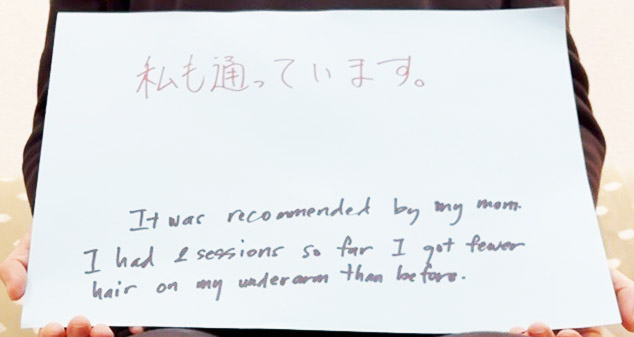 私も通っています。
It was recommended by my mom.
I had 2 sessions so far I got fewer
hair on my underarm than before.